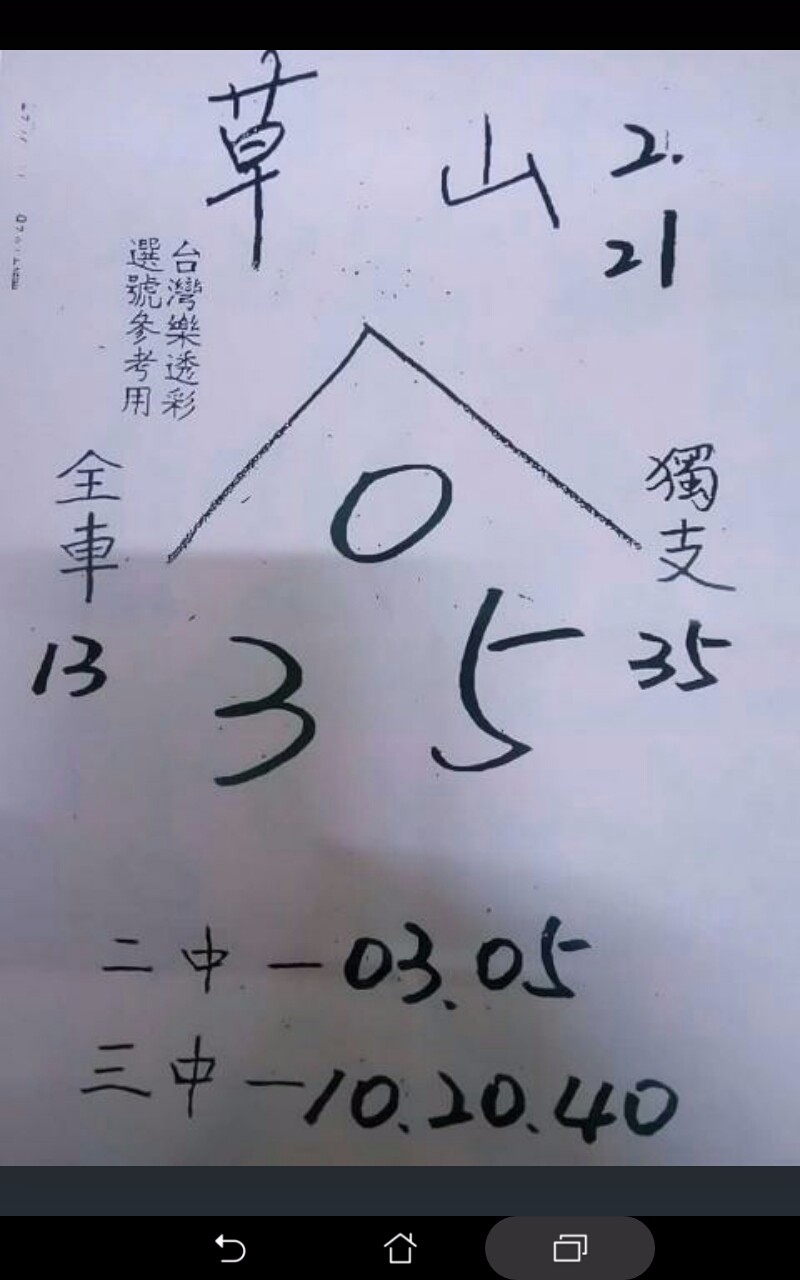 草山 2.
21
台灣樂透彩
選號參考用
全車
獨支
0
13
3 5
35
二中一03.05
三中一10.20.40